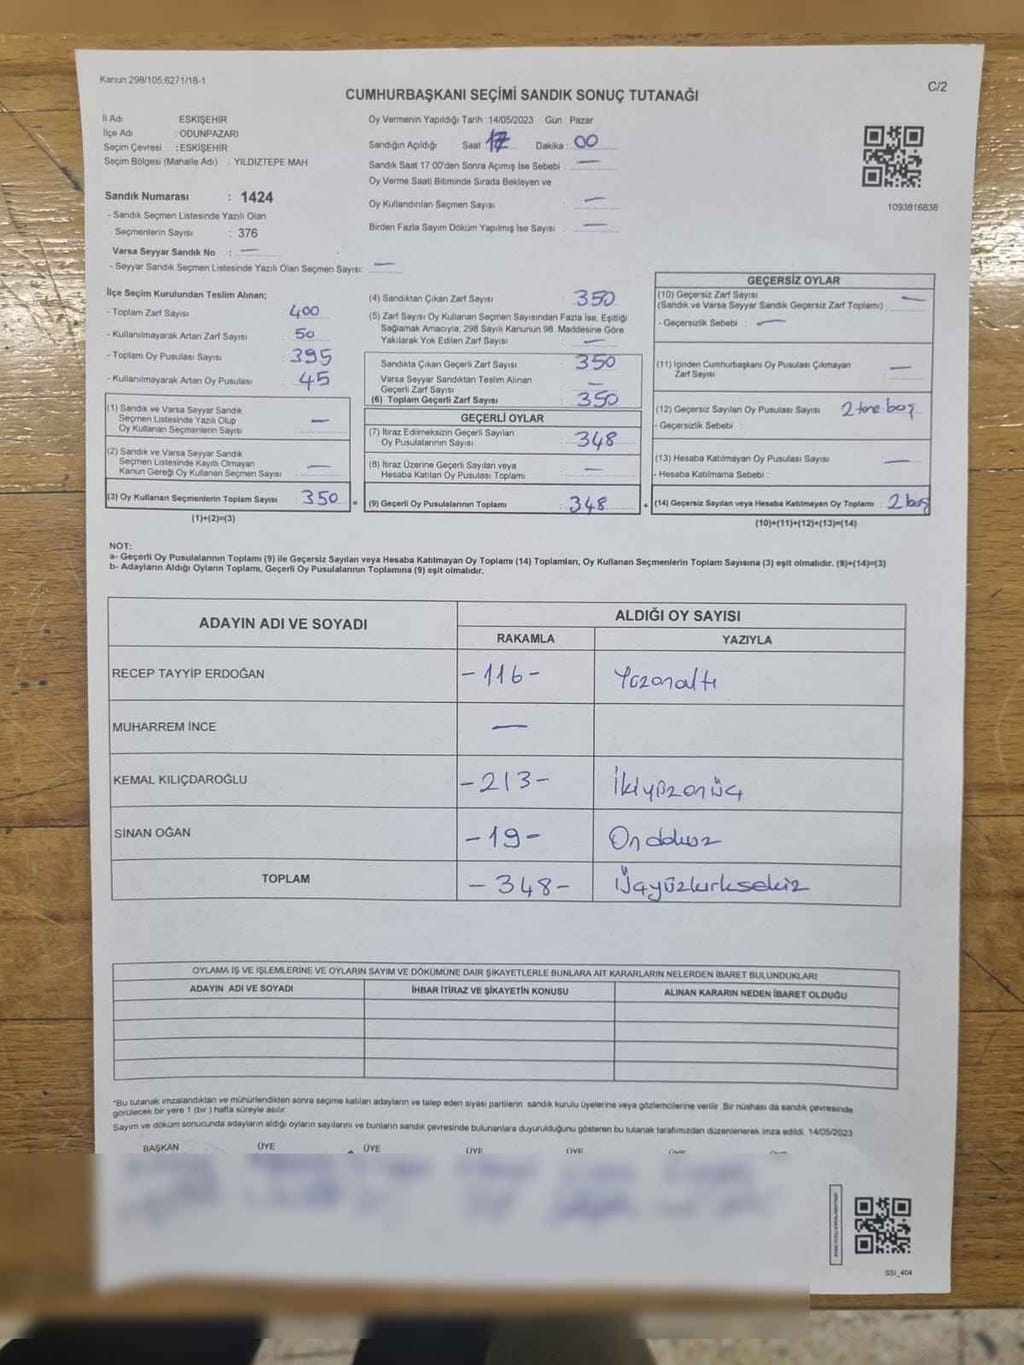 Kanun 298/105,6271/18-1
C/2
CUMHURBAŞKANI SEÇİMİ SANDIK SONUÇ TUTANAĞI
İl Adı ESKİŞEHİR
İlçe Adı : ODUNPAZARI
Seçim Çevresi : ESKİŞEHİR
Seçim Bölgesi (Mahalle Adı) : YILDIZTEPE MAH
Sandık Numarası : 1424
- Sandık Seçmen Listesinde Yazılı Olan
Seçmenlerin Sayısı : 376
Varsa Seyyar Sandık No : —
- Seyyar Sandık Seçmen Listesinde Yazılı Olan Seçmen Sayısı: —
Oy Vermenin Yapıldığı Tarih :14/05/2023 Gün : Pazar
Sandığın Açıldığı Saat 17 Dakika : 00
Sandık Saat 17:00'den Sonra Açımış İse Sebebi : —
Oy Verme Saati Bitiminde Sırada Bekleyen ve
Oy Kullandırılan Seçmen Sayısı —
Birden Fazla Sayım Döküm Yapılmış İse Sayısı : —
1093816838
İlçe Seçim Kurulundan Teslim Alınan;
- Toplam Zarf Sayısı : 400
- Kullanılmayarak Artan Zarf Sayısı : 50
- Toplam Oy Pusulası Sayısı : 395
- Kullanılmayarak Artan Oy Pusulası : 45
(1) Sandık ve Varsa Seyyar Sandık
Seçmen Listesinde Yazılı Olup
Oy Kullanan Seçmenlerin Sayısı : —
(2) Sandık ve Varsa Seyyar Sandık
Seçmen Listesinde Kayıtlı Olmayan
Kanun Gereği Oy Kullanan Seçmen Sayısı : —
(3) Oy Kullanan Seçmenlerin Toplam Sayısı : 350 =
(1)+(2)=(3)
(4) Sandıktan Çıkan Zarf Sayısı : 350
(5) Zarf Sayısı Oy Kullanan Seçmen Sayısından Fazla İse, Eşitliği
Sağlamak Amacıyla; 298 Sayılı Kanunun 98. Maddesine Göre
Yakılarak Yok Edilen Zarf Sayısı : —
Sandıkta Çıkan Geçerli Zarf Sayısı : 350
Varsa Seyyar Sandıktan Teslim Alınan
Geçerli Zarf Sayısı : —
(6) Toplam Geçerli Zarf Sayısı : 350
GEÇERLİ OYLAR
(7) İtiraz Edilmeksizin Geçerli Sayılan
Oy Pusulalarının Sayısı : 348
(8) İtiraz Üzerine Geçerli Sayılan veya
Hesaba Katılan Oy Pusulası Toplamı : —
(9) Geçerli Oy Pusulalarının Toplamı : 348 +
GEÇERSİZ OYLAR
(10) Geçersiz Zarf Sayısı
(Sandık ve Varsa Seyyar Sandık Geçersiz Zarf Toplamı) : —
- Geçersizlik Sebebi : —
(11) İçinden Cumhurbaşkanı Oy Pusulası Çıkmayan
Zarf Sayısı : —
(12) Geçersiz Sayılan Oy Pusulası Sayısı : 2 tane boş
- Geçersizlik Sebebi :
(13) Hesaba Katılmayan Oy Pusulası Sayısı : —
- Hesaba Katılmama Sebebi :
(14) Geçersiz Sayılan veya Hesaba Katılmayan Oy Toplamı : 2 boş
(10)+(11)+(12)+(13)=(14)
NOT:
a- Geçerli Oy Pusulalarının Toplamı (9) ile Geçersiz Sayılan veya Hesaba Katılmayan Oy Toplamı (14) Toplamları, Oy Kullanan Seçmenlerin Toplam Sayısına (3) eşit olmalıdır. (9)+(14)=(3)
b- Adayların Aldığı Oyların Toplamı, Geçerli Oy Pusulalarının Toplamına (9) eşit olmalıdır.
ADAYIN ADI VE SOYADI ALDIĞI OY SAYISI
RAKAMLA YAZIYLA
RECEP TAYYİP ERDOĞAN -116- Yüzonaltı
MUHARREM İNCE —
KEMAL KILIÇDAROĞLU -213- İkiyüzonüç
SİNAN OĞAN -19- Ondokuz
TOPLAM -348- Üçyüzkırksekiz
OYLAMA İŞ VE İŞLEMLERİNE VE OYLARIN SAYIM VE DÖKÜMÜNE DAİR ŞİKAYETLERLE BUNLARA AİT KARARLARIN NELERDEN İBARET BULUNDUKLARI
ADAYIN ADI VE SOYADI İHBAR İTİRAZ VE ŞİKAYETİN KONUSU ALINAN KARARIN NEDEN İBARET OLDUĞU
*Bu tutanak imzalandıktan ve mühürlendikten sonra seçime katılan adayların ve talep eden siyasi partilerin sandık kurulu üyelerine veya gözlemcilerine verilir. Bir nüshası da sandık çevresinde
görülecek bir yere 1 (bir) hafta süreyle asılır.
Sayım ve döküm sonucunda adayların aldığı oyların sayılarını ve bunların sandık çevresinde bulunanlara duyurulduğunu gösteren bu tutanak tarafımızdan düzenlenerek imza edildi. 14/05/2023
BAŞKAN ÜYE ÜYE ÜYE ÜYE ÜYE ÜYE
SSI_404